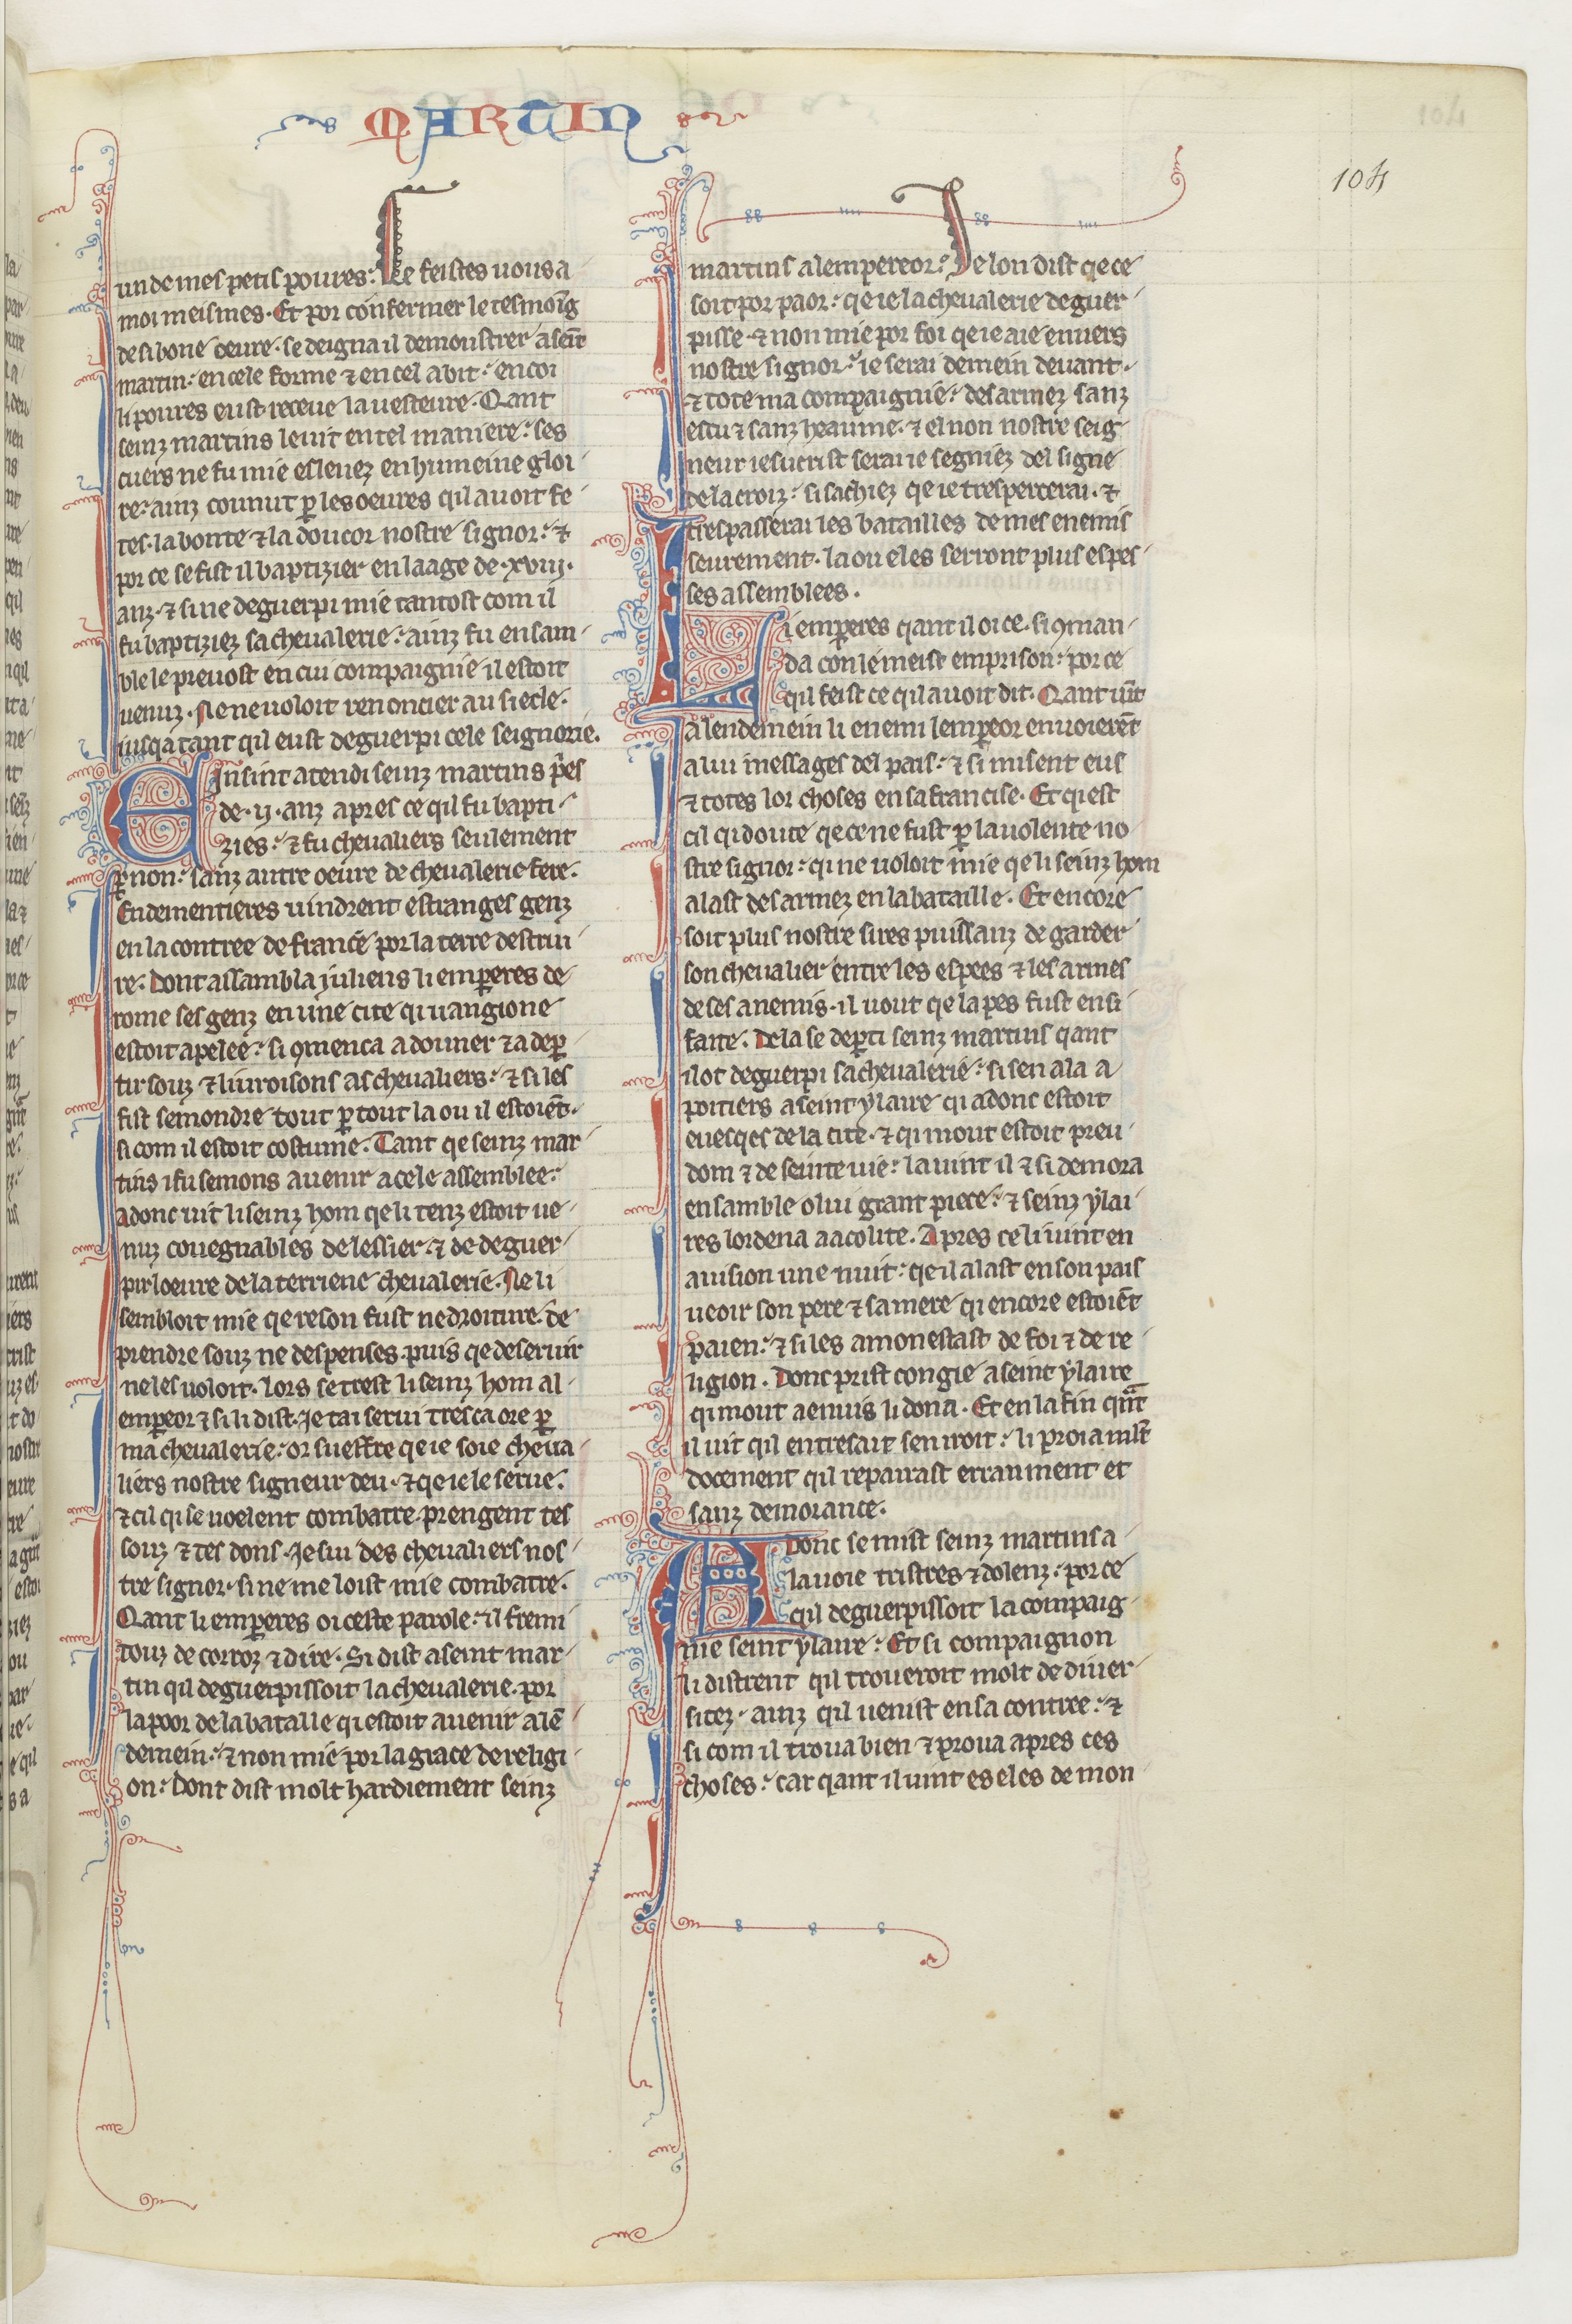 MARTIN
104
un de mes petis poures: Le feistes uous a
moi meismes. Et por confermer le tesmoĩg
de si bone oeure. se deigna il demoustrer a seĩt
martin: en cele forme ⁊ en cel abit: en coi
li poures eust receue la uesteure. Qant
seinz martins le uit en tel maniere: ses
cuers ne fu mie esleuez en humeine gloi
re: ainz counut ꝑ les oeures qil auoit fe
tes. la bonte ⁊ la doucor nostre signor: ⁊
por ce se fist il baptizier en laage de .xviij.
anz. ⁊ si ne deguerpi mie tantost com il
fu baptiziez sa cheualerie: ainz fu ensam
ble le preuost en cui compaignie il estoit
uenuz. Ne ne uoloit renoncier au siecle.
iusqa tant qil eust deguerpi cele seignorie.
Einsint atendi seinz martins p̃s
de .ij. anz apres ce qil fu bapti
zies: ⁊ fu cheualiers seulement
ꝑ non: sanz autre oeure de cheualerie fere.
Endementieres uindrent estranges genz
en la contree de france por la terre destrui
re. Dont assambla juliens li emꝑeres de
rome ses genz en une cite qi uangione
estoit apelee: si ꝯmenca a donner ⁊ a deꝑ
tir souz ⁊ liuroisons as cheualiers: ⁊ si les
fist semondre tout ꝑ tout la ou il estoiẽt.
si com il estoit costume. Tant qe seinz mar
tins i fu semons a uenir a cele assemblee:
adonc uit li seinz hom qe li tenz estoit ue
nuz couegnables de lessier. ⁊ de deguer
pir loeure de la terriene cheualerie. Ne li
sembloit mie qe reson fust ne droiture. de
prendre souz ne despenses. puis qe deseruir
ne les uoloit. lors se trest li seinz hom al
emꝑeor ⁊ si li dist. Je tai serui tresca ore ꝑ
ma cheualerie: or sueffre qe ie soie cheua
liers nostre signeur deu. ⁊ qe ie le serue.
⁊ cil qi se uoelent combatre. prengent tes
souz ⁊ tes dons. Je sui des cheualiers nos
tre signor. si ne me loist mie combatre.
Qant li emꝑeres oi ceste parole: il fremi
touz de corroz ⁊ dire. Si dist a seint mar
tin qil deguerpissoit la cheualerie. por
la poor de la batalle qi estoit a uenir alẽ
demein: ⁊ non mie por la grace de religi
on: Dont dist molt hardiement seinz
martins a lempereor: Se lon dist qe ce
soit por paor: qe ie la cheualerie deguer
pisse. ⁊ non mie por foi qe ie aie enuers
nostre signor: ie serai demein deuant.
⁊ tote ma compaignie: desarmez sanz
escu ⁊ sanz heaume. ⁊ el non nostre seig
neur iesucrist serai ie segniez del signe
de la croiz: si sachiez qe ie trespercerai. ⁊
trespasserai les batailles de mes enemis
seurement. la ou eles serront plus espes
ses assemblees.
Li emꝑeres qant il oi ce. si ꝯman
da con le meist em prison: por ce
qil feist ce qil auoit dit. Qant uĩt
a lendemein li enemi lemꝑeor enuoierẽt
a lui messages del pais: ⁊ si misent eus
⁊ totes lor choses en sa francise. Et qi est
cil qi doute qe ce ne fust ꝑ la uolente no
stre signor: qi ne uoloit mie qe li seinz hom
alast desarmez en la bataille. Et encore
soit plus nostre sires puissanz de garder
son cheualier entre les espees ⁊ les armes
de ses anemis. il uout qe la pes fust ensi
faite. De la se deꝑti seinz martins qant
il ot deguerpi sa cheualerie: si sen ala a
poitiers a seint ylaire qi adonc estoit
euesqes de la cite. ⁊ qi mout estoit preu
dom ⁊ de seinte uie: la uint il ⁊ si demora
ensamble o lui grant piece: ⁊ seinz ylai
res lordena a acolite. Apres ce li uint en
auision une nuit: qe il alast en son pais
ueoir son pere ⁊ sa mere qi encore estoiẽt
paien: ⁊ si les amonestast de foi ⁊ de re
ligion. Donc prist congie a seint ylaire
qi mout a enuis li dona. Et en la fin qñt
il uit qil entresait sen iroit: li proia mlt̃
docement qil repairast erranment et
sanz demorance.
Adonc se mist seinz martins a
la uoie tristres ⁊ dolenz. por ce
qil deguerpissoit la compaig
nie seint ylaire: Et si compaignon
li distrent qil troueroit molt de diuer
sitez. ainz qil uenist en sa contree: ⁊
si com il troua bien ⁊ proua apres ces
choses: car qant il uint es eles de mon